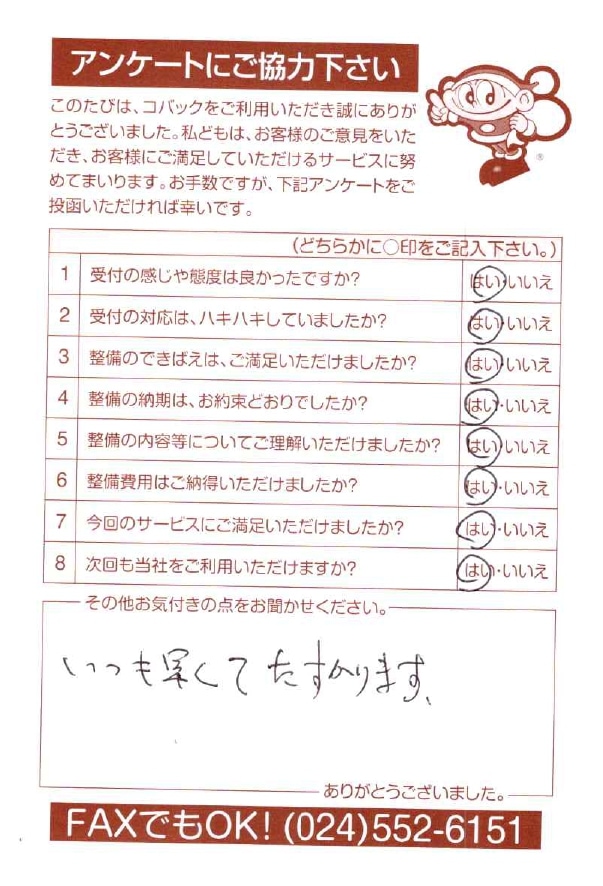 アンケートにご協力下さい
このたびは、コバックをご利用いただき誠にありが
とうございました。私どもは、お客様のご意見をいた
だき、お客様にご満足していただけるサービスに努
めてまいります。お手数ですが、下記アンケートをご
投函いただければ幸いです。
®
(どちらかに○印をご記入下さい。)
1 受付の感じや態度は良かったですか? はい・いいえ
2 受付の対応は、ハキハキしていましたか? はい・いいえ
3 整備のできばえは、ご満足いただけましたか? はい・いいえ
4 整備の納期は、お約束どおりでしたか? はい・いいえ
5 整備の内容等についてご理解いただけましたか? はい・いいえ
6 整備費用はご納得いただけましたか? はい・いいえ
7 今回のサービスにご満足いただけましたか? はい・いいえ
8 次回も当社をご利用いただけますか? はい・いいえ
その他お気付きの点をお聞かせください。
いつも早くてたすかります、
ありがとうございました。
FAXでもOK! (024)552-6151